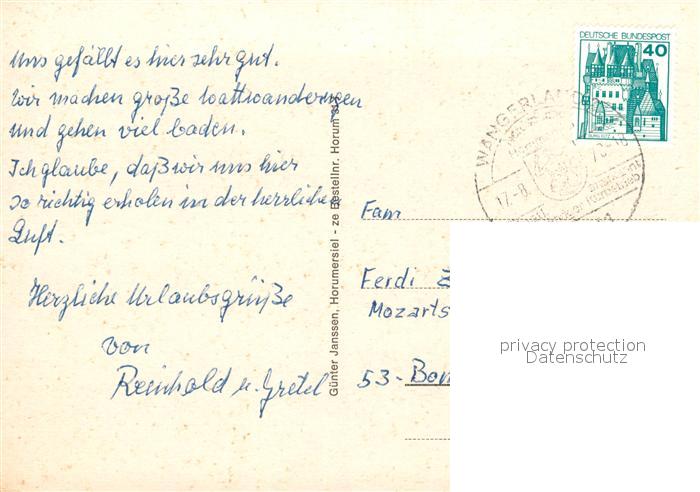 Uns gefällt es hier sehr gut.
Wir machen große Wattwanderungen
und gehen viel baden.
Ich glaube, daß wir uns hier
so richtig erholen in der herrlichen
Luft.
Herzliche Urlaubsgrüße
von
Reinhold u. Gretel
Günter Janssen, Horumersiel - ze Bestellnr. Horum
DEUTSCHE BUNDESPOST
40
WANGERLAND
17.-8.
Fam
Ferdi
Mozarts
53-Bon
privacy protection
Datenschutz